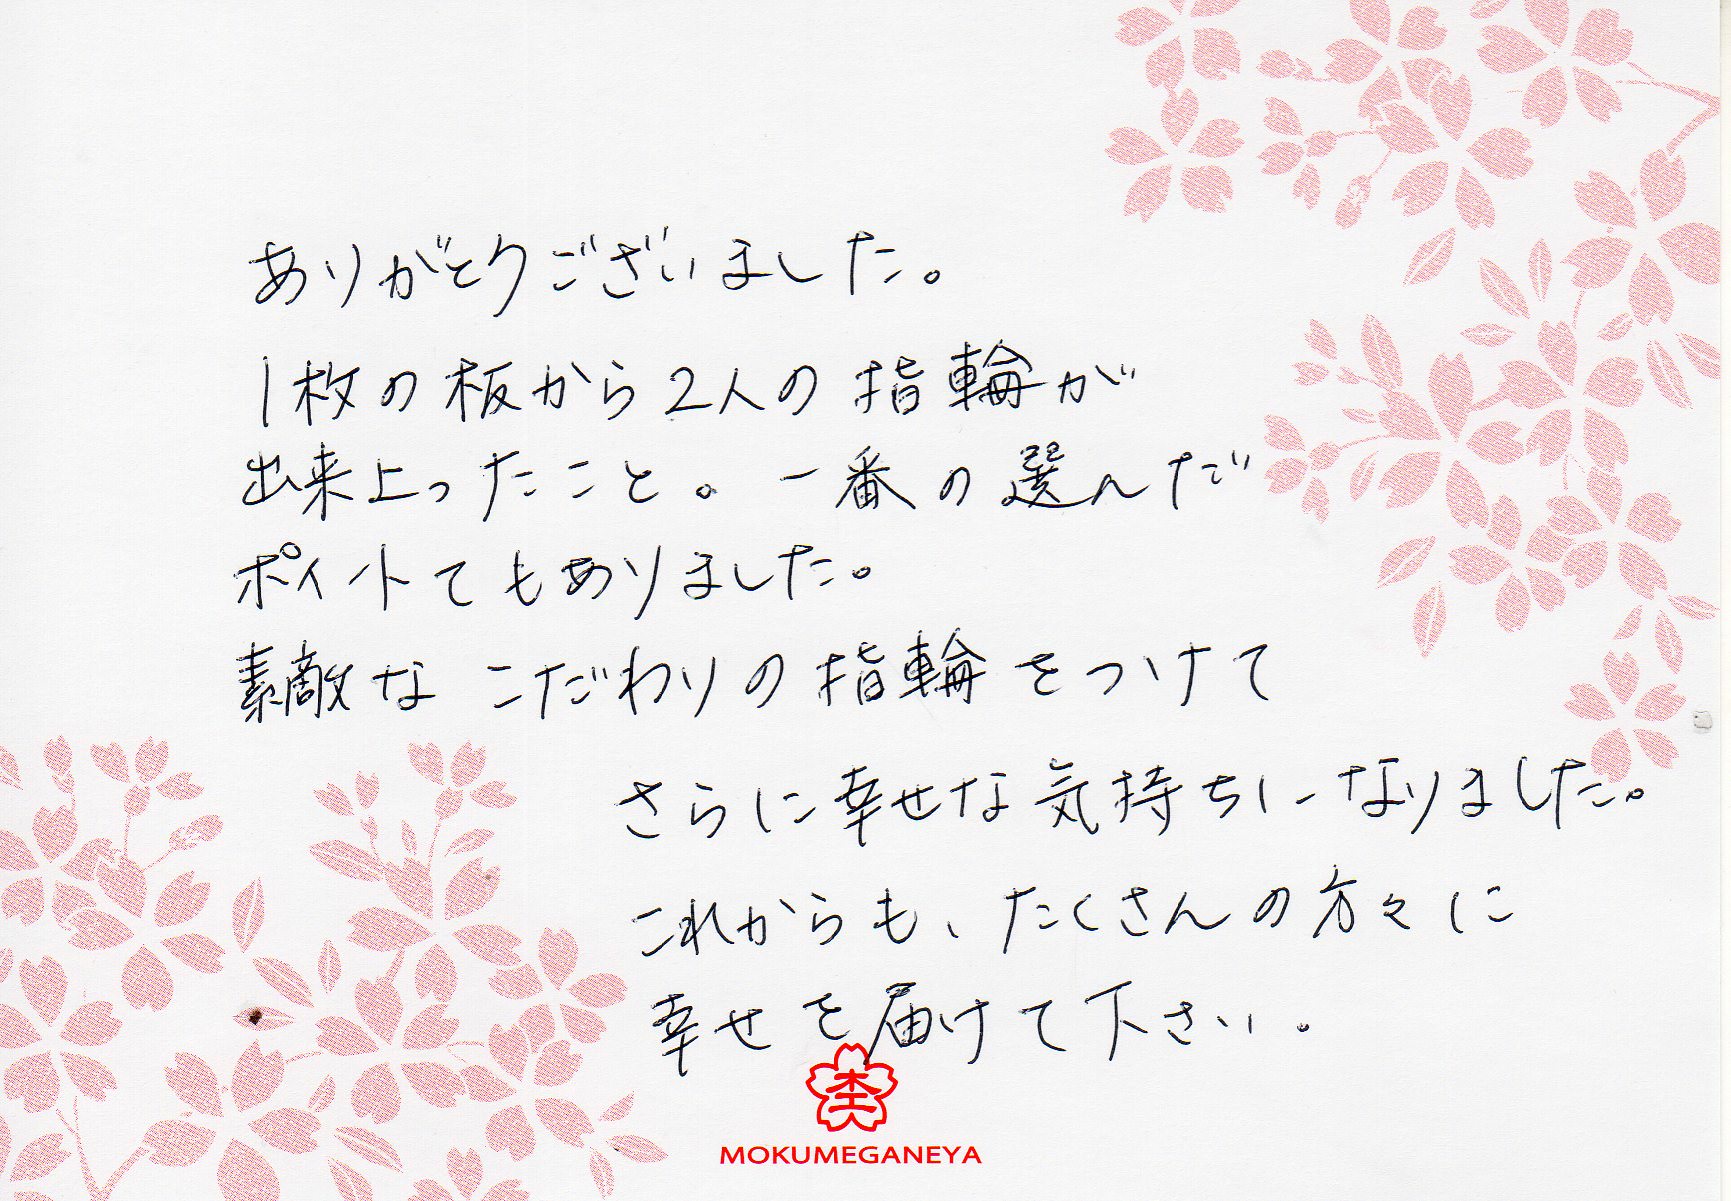 ありがとうございました。
1枚の板から2人の指輪が
出来上ったこと。一番の選んだ
ポイントでもありました。
素敵な こだわりの指輪をつけて
さらに幸せな気持ちになりました。
これからも、たくさんの方々に
幸せを届けて下さい。
MOKUMEGANEYA